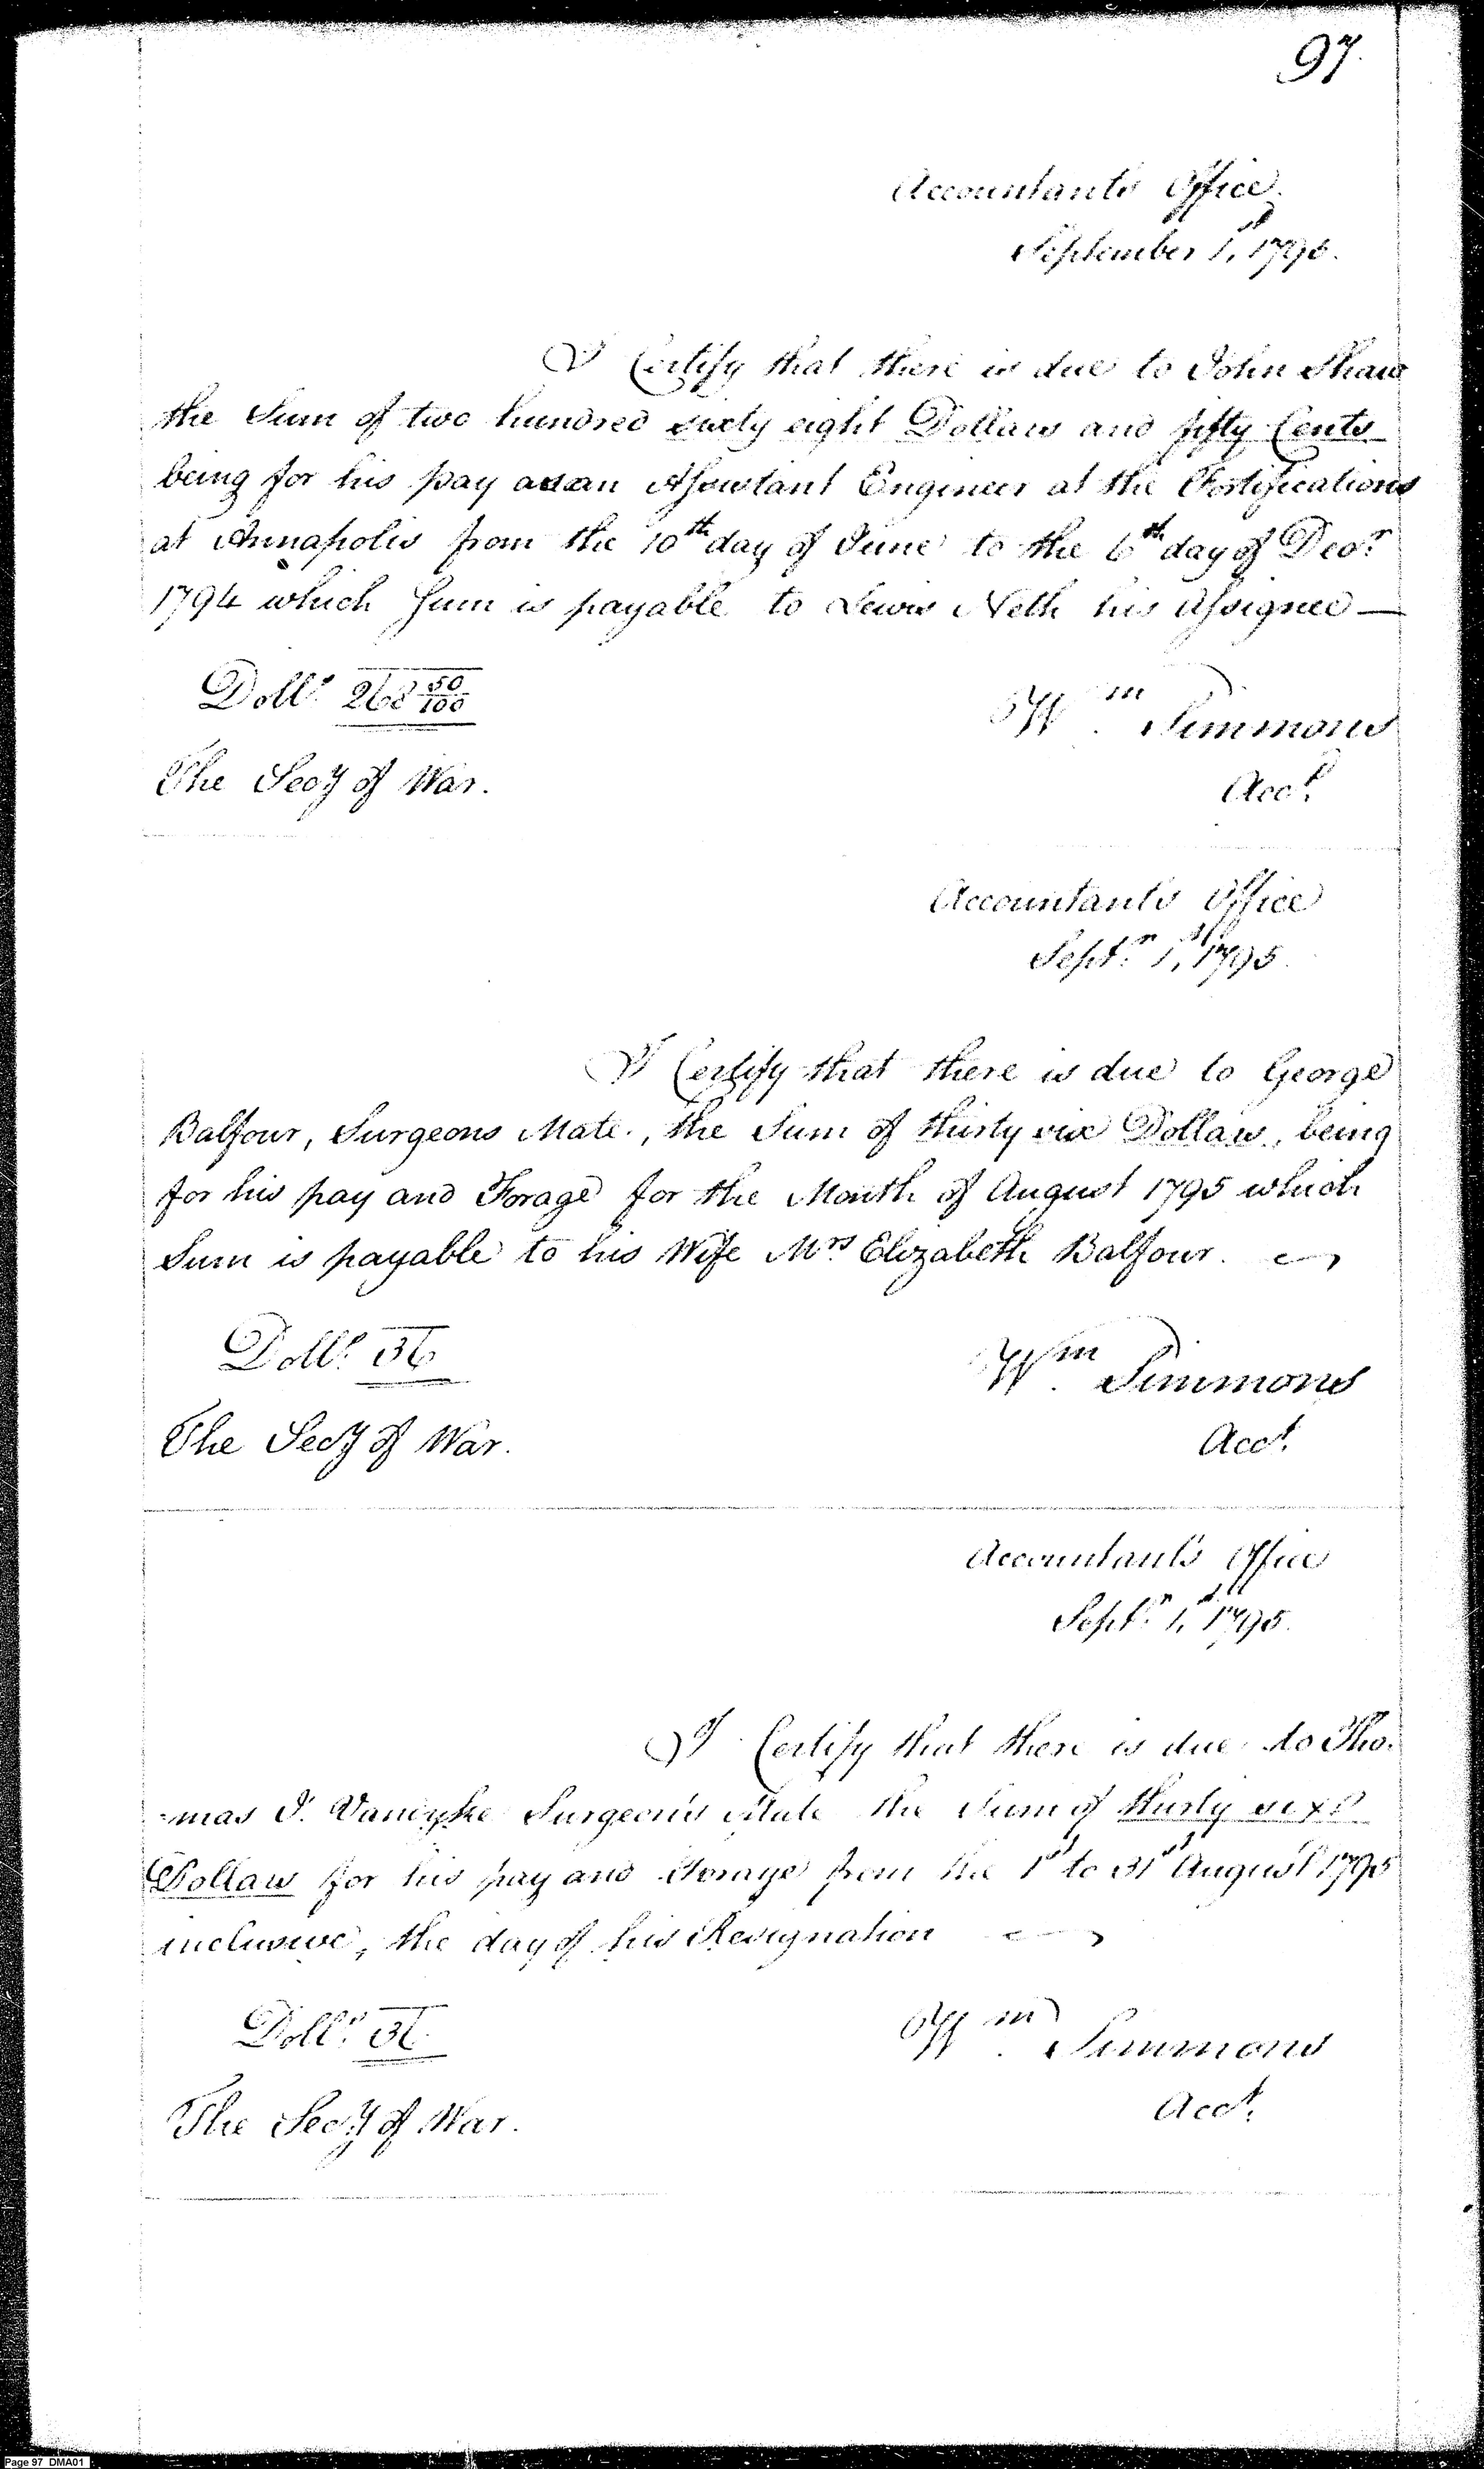 97.
Accountants Office.
September 1st, 1795.
I Certify that there is due to John Shaw
the Sum of two hundred sixty eight Dollars and fifty Cents
being for his pay as an Assistant Engineer at the Fortifications
at Annapolis from the 10th day of June to the 6th day of Decr
1794 which Sum is payable to Lewis Neth his Assignee —
Dolls. 268 50/100
Wm. Simmons
The Secy of War.
Acct.
Accountants Office
Septr. 1st, 1795.
I Certify that there is due to George
Balfour, Surgeons Mate., the Sum of thirty six Dollars, being
for his pay and Forage for the Month of August 1795 which
Sum is payable to his Wife Mrs. Elizabeth Balfour.
Dolls. 36
Wm. Simmons
The Secy of War.
Acct.
Accountant's Office
Septr. 1st, 1795.
I Certify that there is due to Tho-
-mas J. Vandyke Surgeon's Mate the Sum of thirty six
Dollars for his pay and Forage from the 1st to 31st August 1795
inclusive, the day of his Resignation
Dolls. 36
Wm. Simmons
The Secy of War.
Acct.
Page 97 DMA01